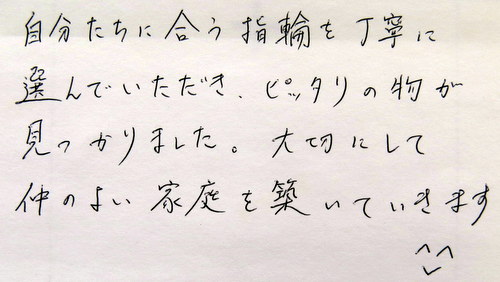 自分たちに合う指輪を丁寧に
選んでいただき、ピッタリの物が
見つかりました。大切にして
仲のよい家庭を築いていきます
^_^